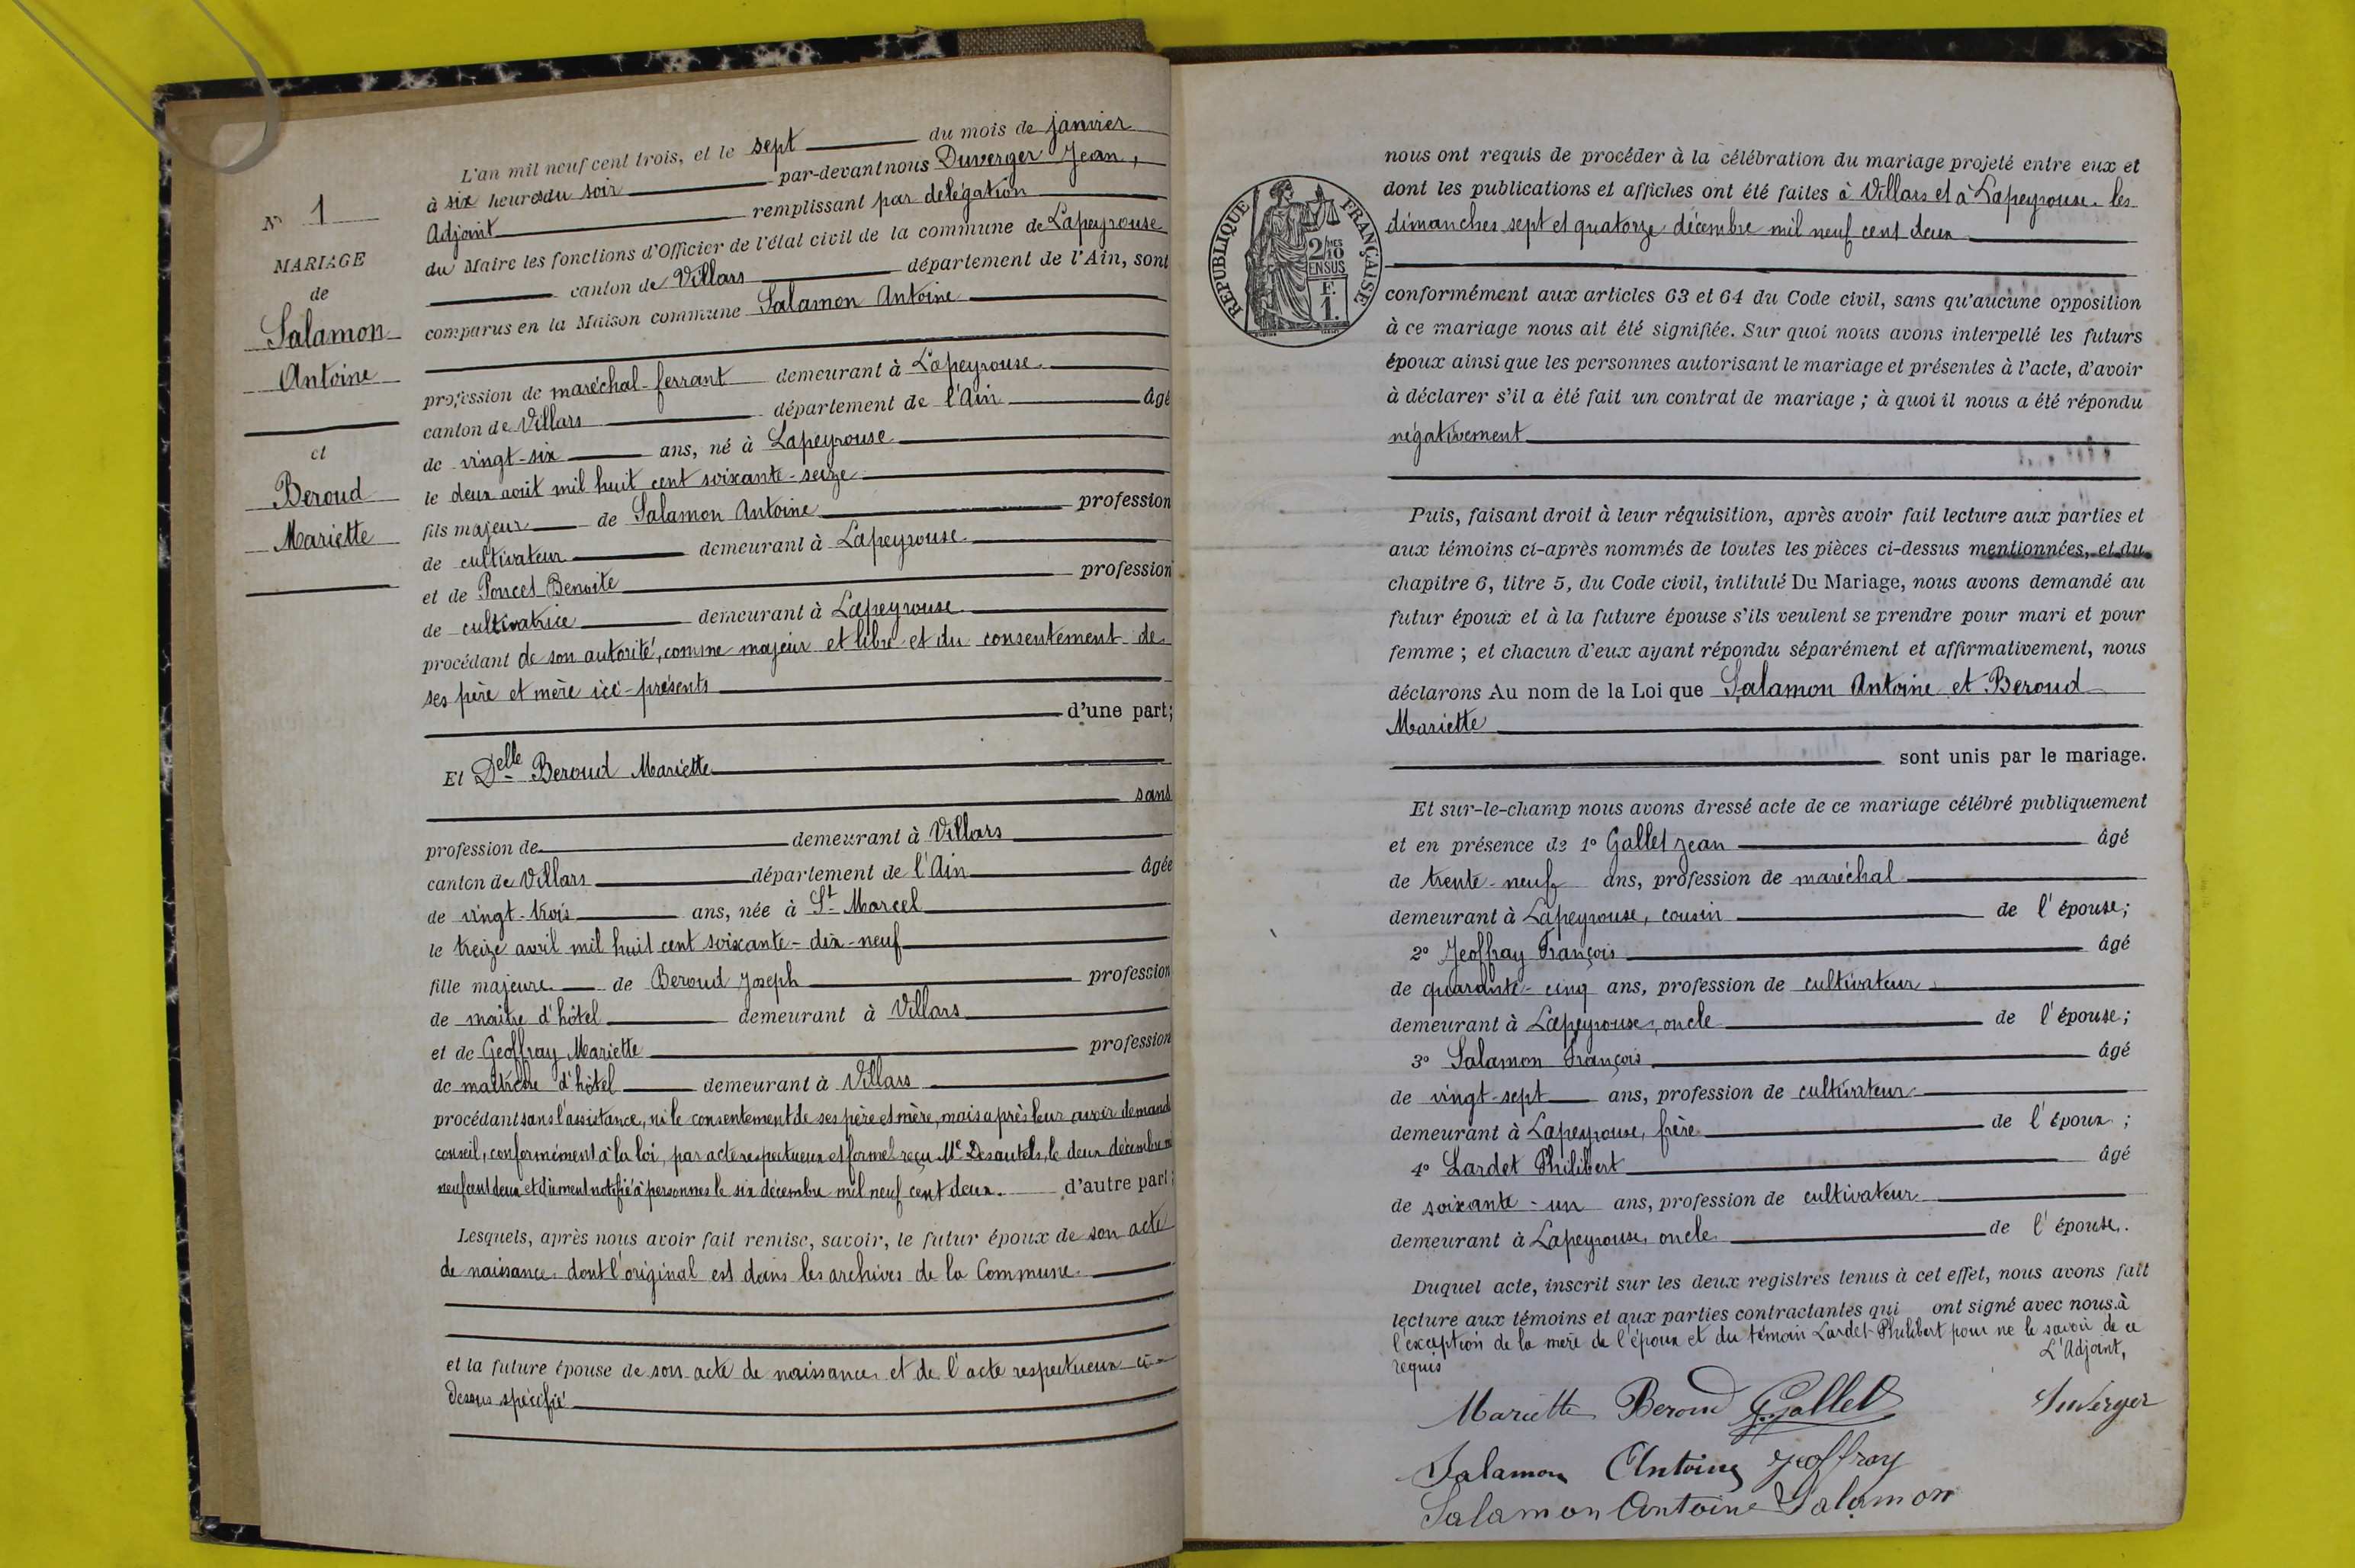 L'an mil neuf cent trois, et le sept du mois de janvier
à six heures du soir par-devant nous Duverger Jean,
Adjoint remplissant par délégation
du Maire les fonctions d'Officier de l'état civil de la commune de Lapeyrouse
canton de Villars département de l'Ain, sont
comparus en la Maison commune Salamon Antoine
profession de maréchal-ferrant demeurant à Lapeyrouse
canton de Villars département de l'Ain âgé
de vingt-six ans, né à Lapeyrouse
le deux août mil huit cent soixante-seize
fils majeur de Salamon Antoine profession
de cultivateur demeurant à Lapeyrouse
et de Poncet Benoite profession
de cultivatrice demeurant à Lapeyrouse
procédant de son autorité, comme majeur et libre et du consentement de
ses père et mère ici-présents
d'une part;
Et Delle Beroud Mariette
sans
profession de demeurant à Villars
canton de Villars département de l'Ain âgée
de vingt-trois ans, née à St Marcel
le treize avril mil huit cent soixante-dix-neuf
fille majeure de Beroud Joseph profession
de maitre d'hôtel demeurant à Villars
et de Geoffray Mariette profession
de maîtresse d'hôtel demeurant à Villars
procédant sans l'assistance, ni le consentement de ses père et mère, mais après leur avoir demand
conseil, conformément à la loi, par acte respectueux et formel reçu Me Desautels, le deux décembre
neuf cent deux et dûment notifié à personnes le six décembre mil neuf cent deux. d'autre part;
Lesquels, après nous avoir fait remise, savoir, le futur époux de son acte
de naissance dont l'original est dans les archives de la Commune
et la future épouse de son acte de naissance et de l'acte respectueux ci-
dessus spécifié
N° 1
MARIAGE
de
Salamon
Antoine
et
Beroud
Mariette
RÉPUBLIQUE FRANÇAISE
2/10
EN SUS
F.
1.
nous ont requis de procéder à la célébration du mariage projeté entre eux et
dont les publications et affiches ont été faites à Villars et à Lapeyrouse les
dimanches sept et quatorze décembre mil neuf cent deux
conformément aux articles 63 et 64 du Code civil, sans qu'aucune opposition
à ce mariage nous ait été signifiée. Sur quoi nous avons interpellé les futurs
époux ainsi que les personnes autorisant le mariage et présentes à l'acte, d'avoir
à déclarer s'il a été fait un contrat de mariage ; à quoi il nous a été répondu
négativement
Puis, faisant droit à leur réquisition, après avoir fait lecture aux parties et
aux témoins ci-après nommés de toutes les pièces ci-dessus mentionnées, et du
chapitre 6, titre 5, du Code civil, intitulé Du Mariage, nous avons demandé au
futur époux et à la future épouse s'ils veulent se prendre pour mari et pour
femme ; et chacun d'eux ayant répondu séparément et affirmativement, nous
déclarons Au nom de la Loi que Salamon Antoine et Beroud
Mariette
sont unis par le mariage.
Et sur-le-champ nous avons dressé acte de ce mariage célébré publiquement
et en présence de 1° Gallet Jean âgé
de trente-neuf ans, profession de maréchal
demeurant à Lapeyrouse, cousin de l'épouse;
2° Jeoffray François âgé
de quarante-cinq ans, profession de cultivateur
demeurant à Lapeyrouse, oncle de l'épouse;
3° Salamon François âgé
de vingt-sept ans, profession de cultivateur
demeurant à Lapeyrouse, frère de l'époux;
4° Lardet Philibert âgé
de soixante-un ans, profession de cultivateur
demeurant à Lapeyrouse, oncle de l'épouse.
Duquel acte, inscrit sur les deux registres tenus à cet effet, nous avons fait
lecture aux témoins et aux parties contractantes qui ont signé avec nous à
l'exception de la mère de l'époux et du témoin Lardet Philibert pour ne le savoir de ce
requis L'Adjoint,
Mariette Beroud J. Gallet Duverger
Salamon Antoine Jeoffray
Salamon Antoine Salamon